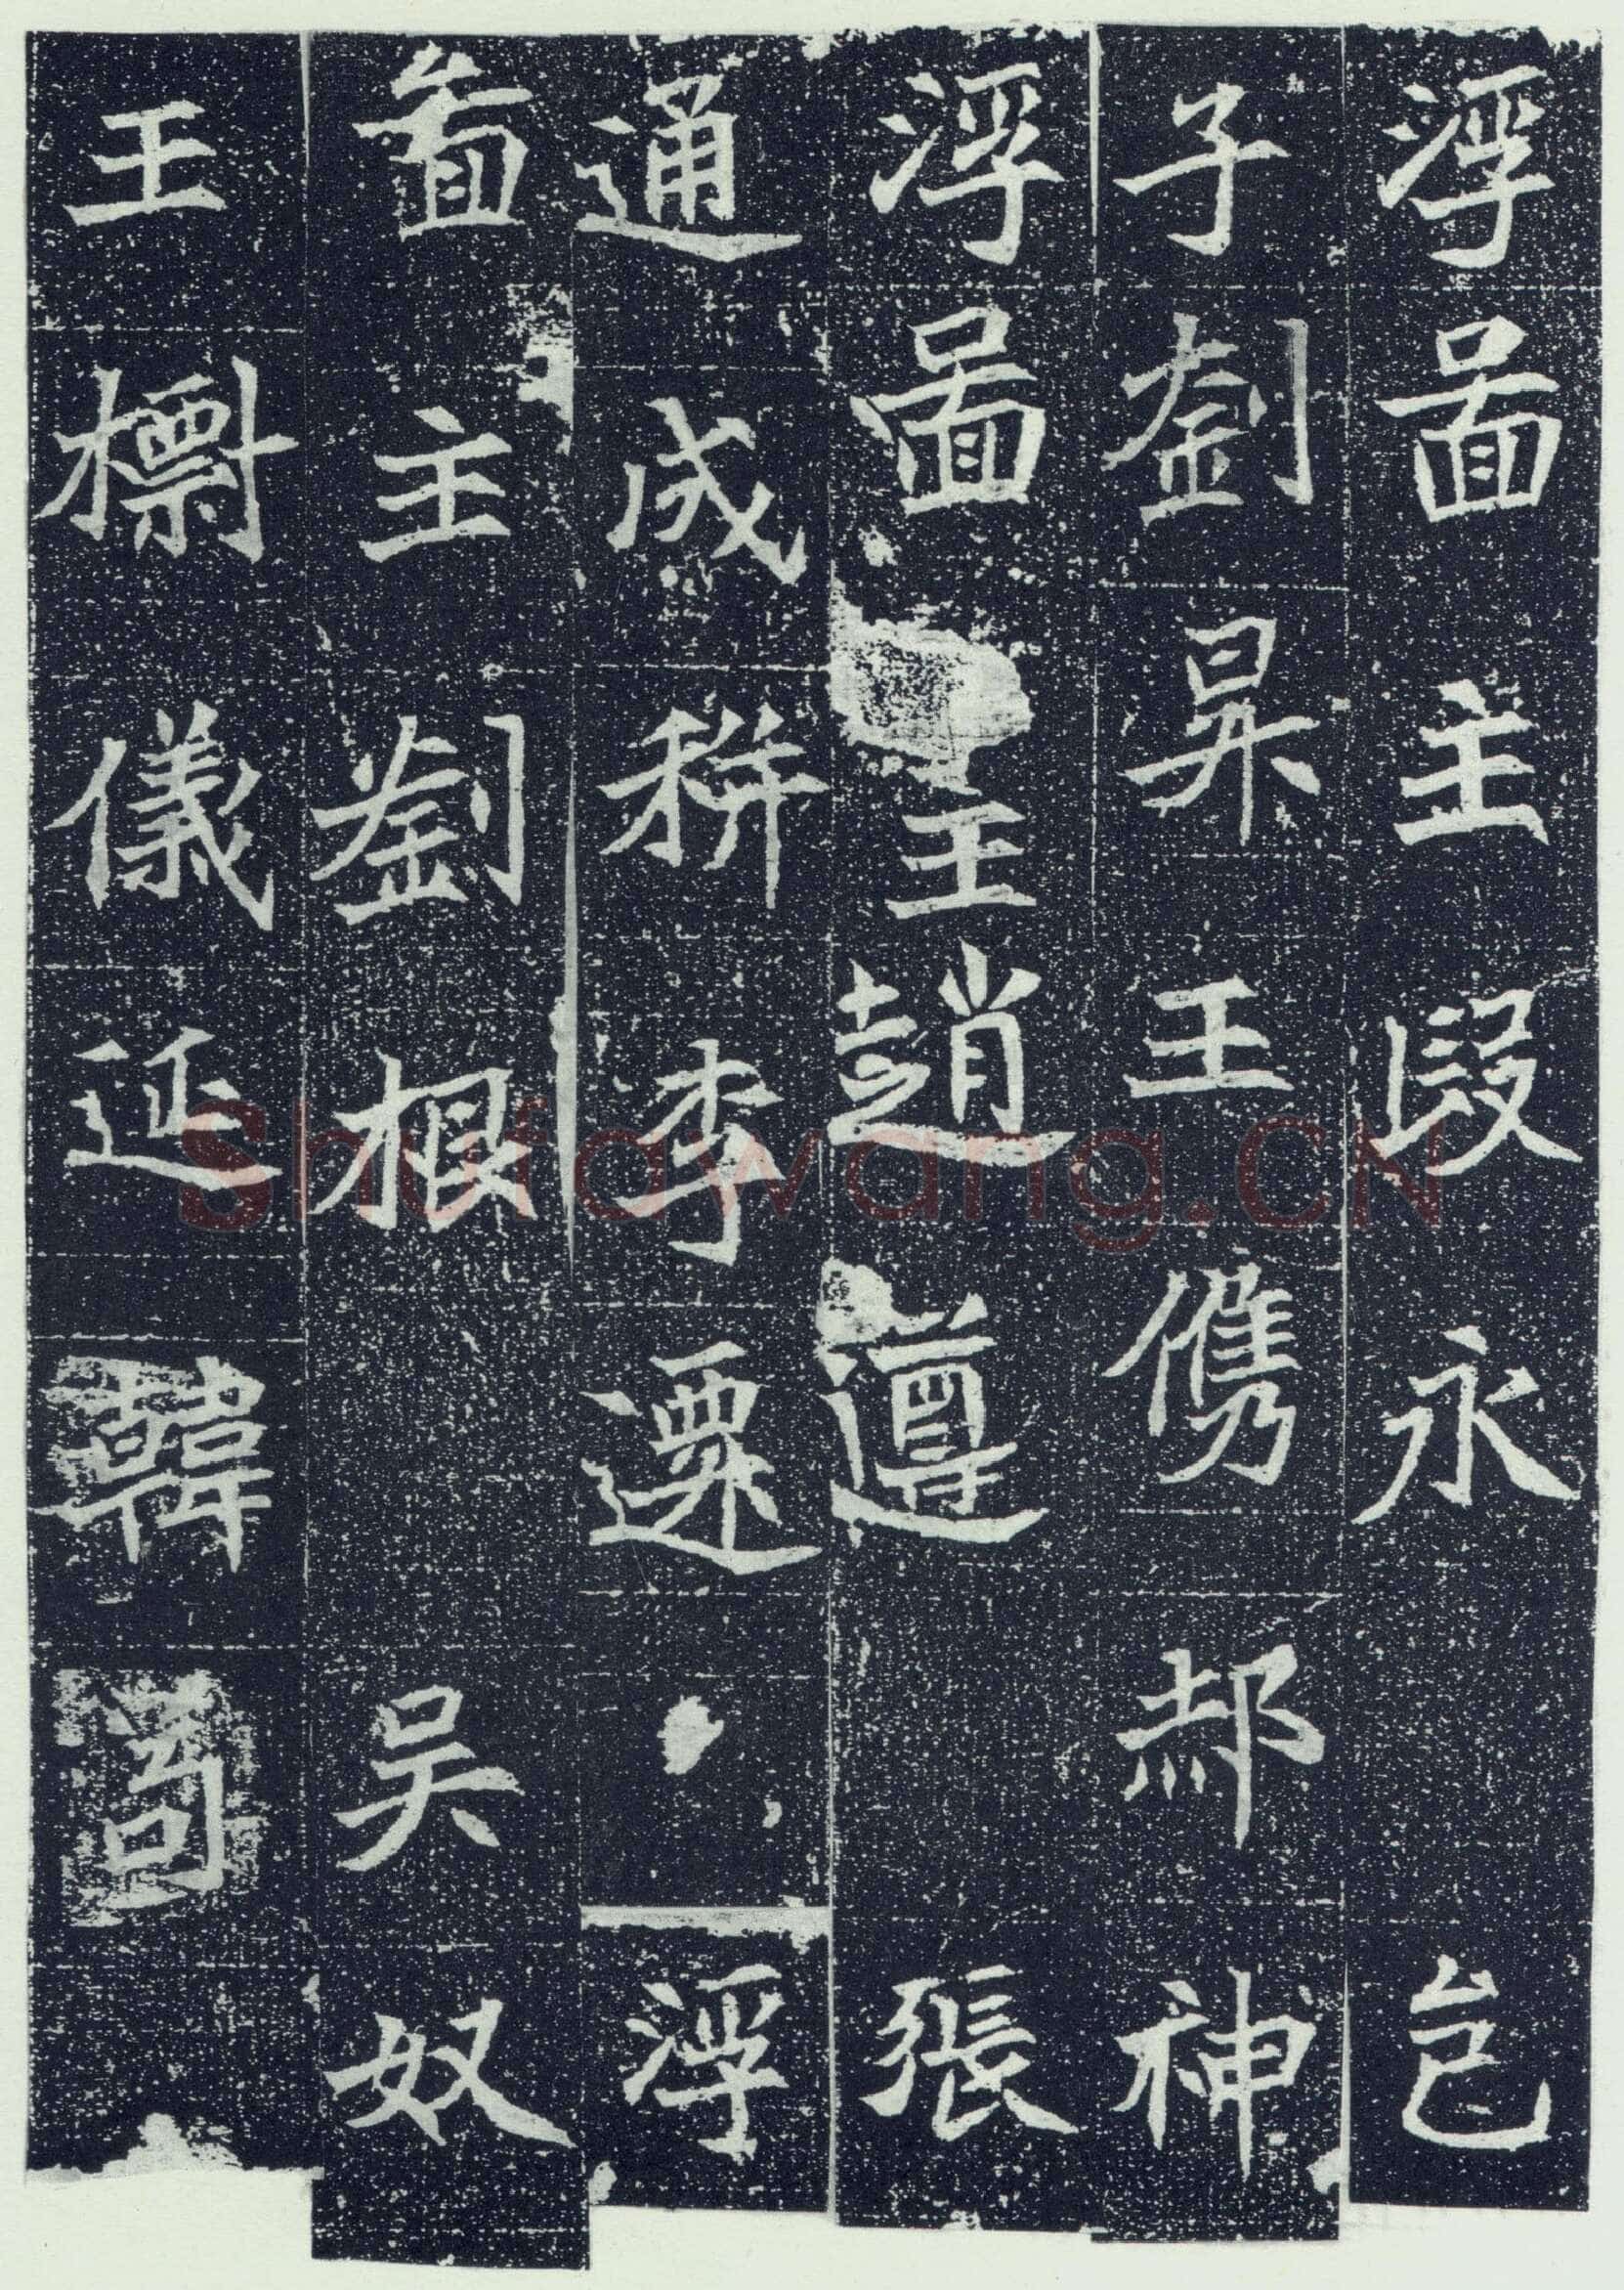 浮啚主段永邑
子劉昇王儁郝神
浮啚主趙遵張
通成李遷浮
啚主劉根吴奴
王儀延韓
Shufawang.CN